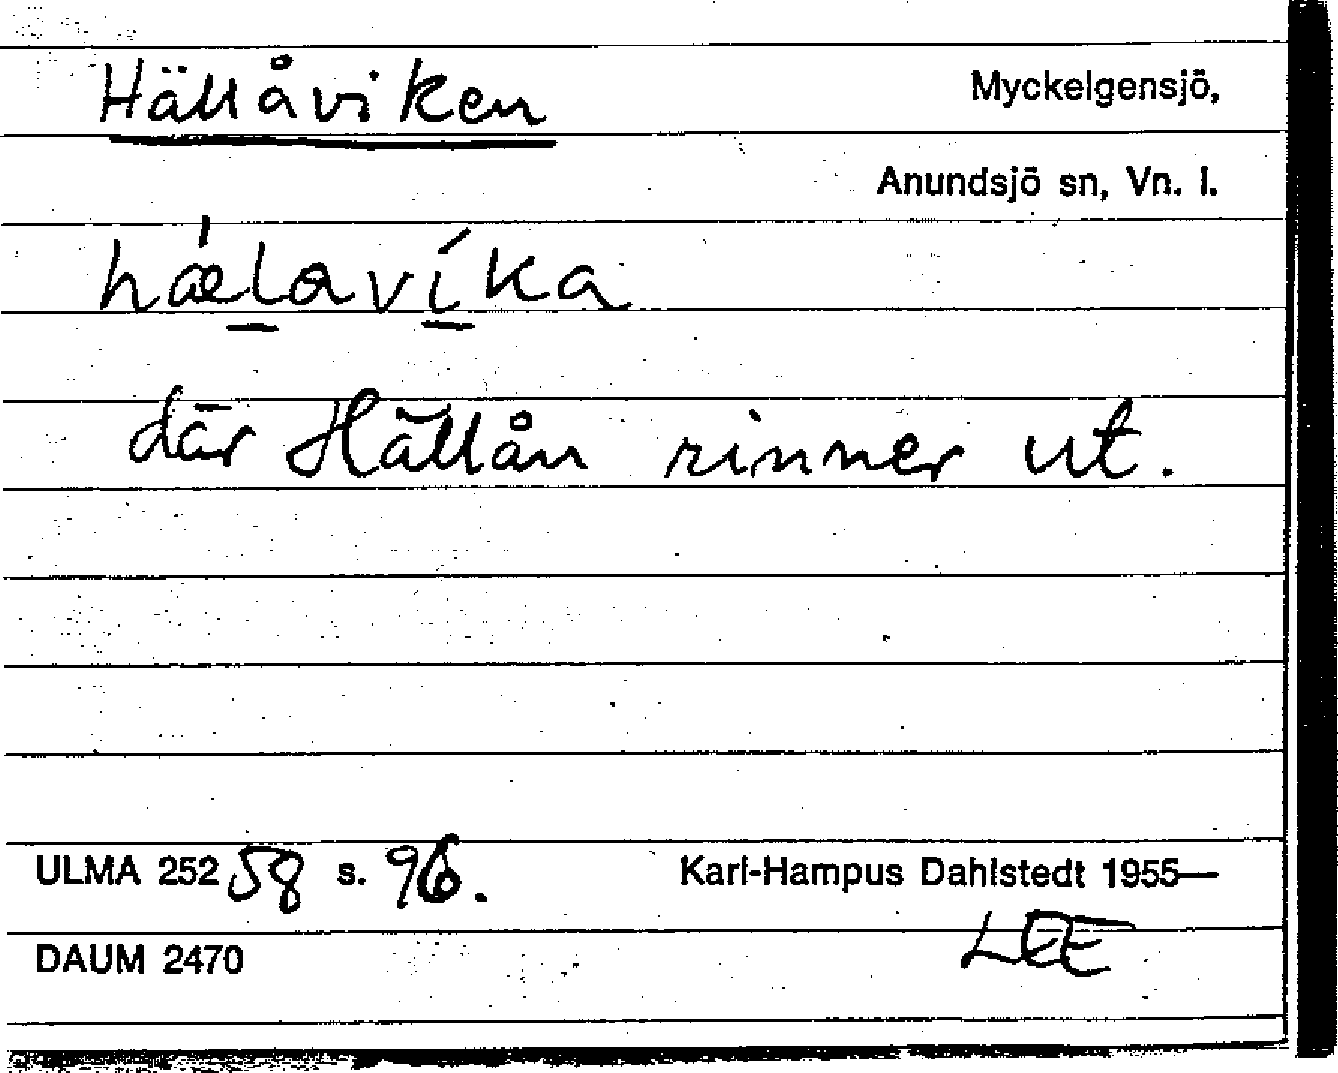 Hällåviken
Myckelgensjö,
Anundsjö sn, Vn. l.
hǽlavíka
där Hällån rinner ut.
ULMA 25258 s. 96.
Karl-Hampus Dahlstedt 1955—
DAUM 2470
LEE